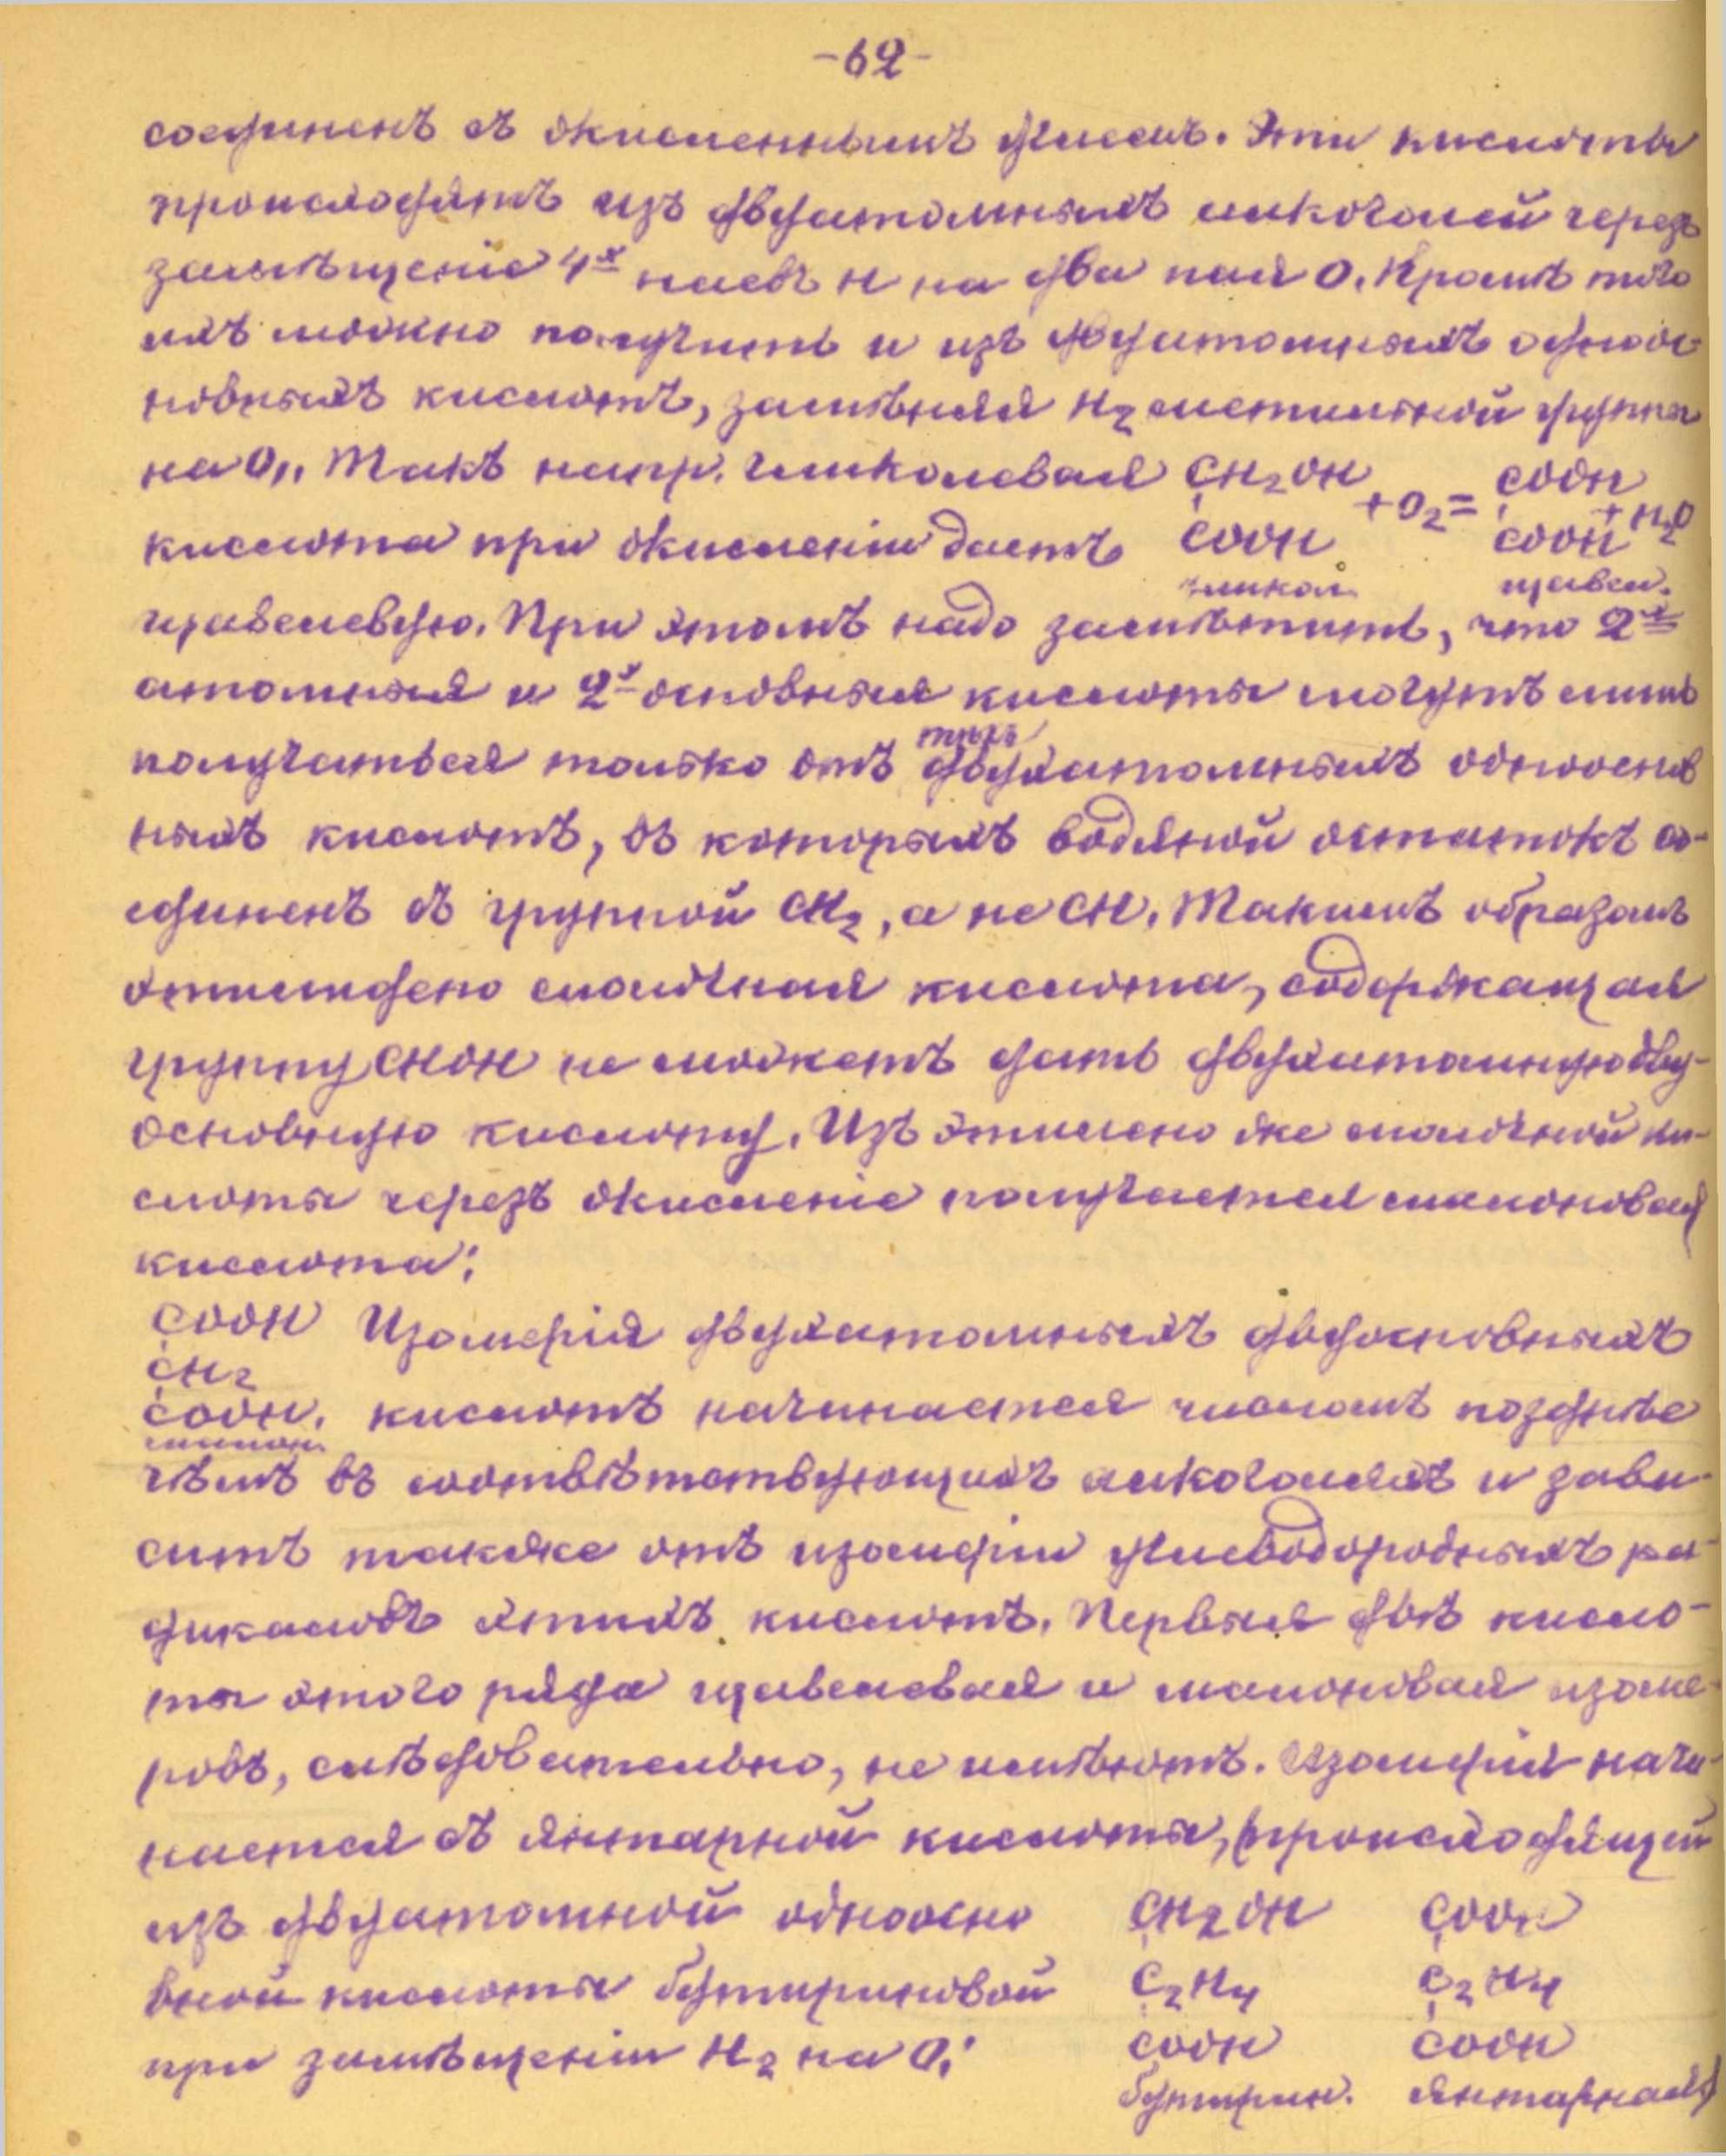 -62-
соединенъ съ окисленнымъ углемъ. Эти кислоты
происходятъ изъ двуатомныхъ алкоголей черезъ
замѣщеніе 4х паевъ H на два пая O. Кромѣ того
ихъ можно получить и изъ двуатомныхъ одноос-
новныхъ кислотъ, замѣняя H2 метильной группы
на O,. Такъ напр. гликолевая CH2OH + O2 = COOH
кислота при окисленіи даетъ COOH COOH + H2O
гликол. щавел.
щавелевую. При этомъ надо замѣтить, что 2х
атомныя и 2х основныя кислоты могутъ лишь
тѣхъ
получаться только отъ двухатомныхъ однооснов
ныхъ кислотъ, въ которыхъ водяной остатокъ со-
единенъ съ группой CH2, а не CH. Такимъ образомъ
этилидено молочная кислота, содержащая
группу CHOH не можетъ дать двухатомную дву-
основную кислоту. Изъ этилено же молочной ки-
слоты черезъ окисленіе получается малоновая
кислота:
COOH Изомерія двухатомныхъ двуосновныхъ
CH2
COOH. кислотъ начинается членомъ позднѣе
малон.
чѣмъ въ соотвѣтствующихъ алкоголяхъ и зави-
ситъ также отъ изомеріи углеводородныхъ ра-
дикаловъ этихъ кислотъ. Первыя двѣ кисло-
ты этого ряда щавелевая и малоновая изоме-
ровъ, слѣдовательно, не имѣютъ. Изомерія начи-
нается съ янтарной кислоты, происходящей
изъ двуатомной одноосно CH2OH COOH
вной кислоты бутириновой C2H4 C2H4
при замѣщеніи H2 на O: COOH COOH
бутирин. Янтарная